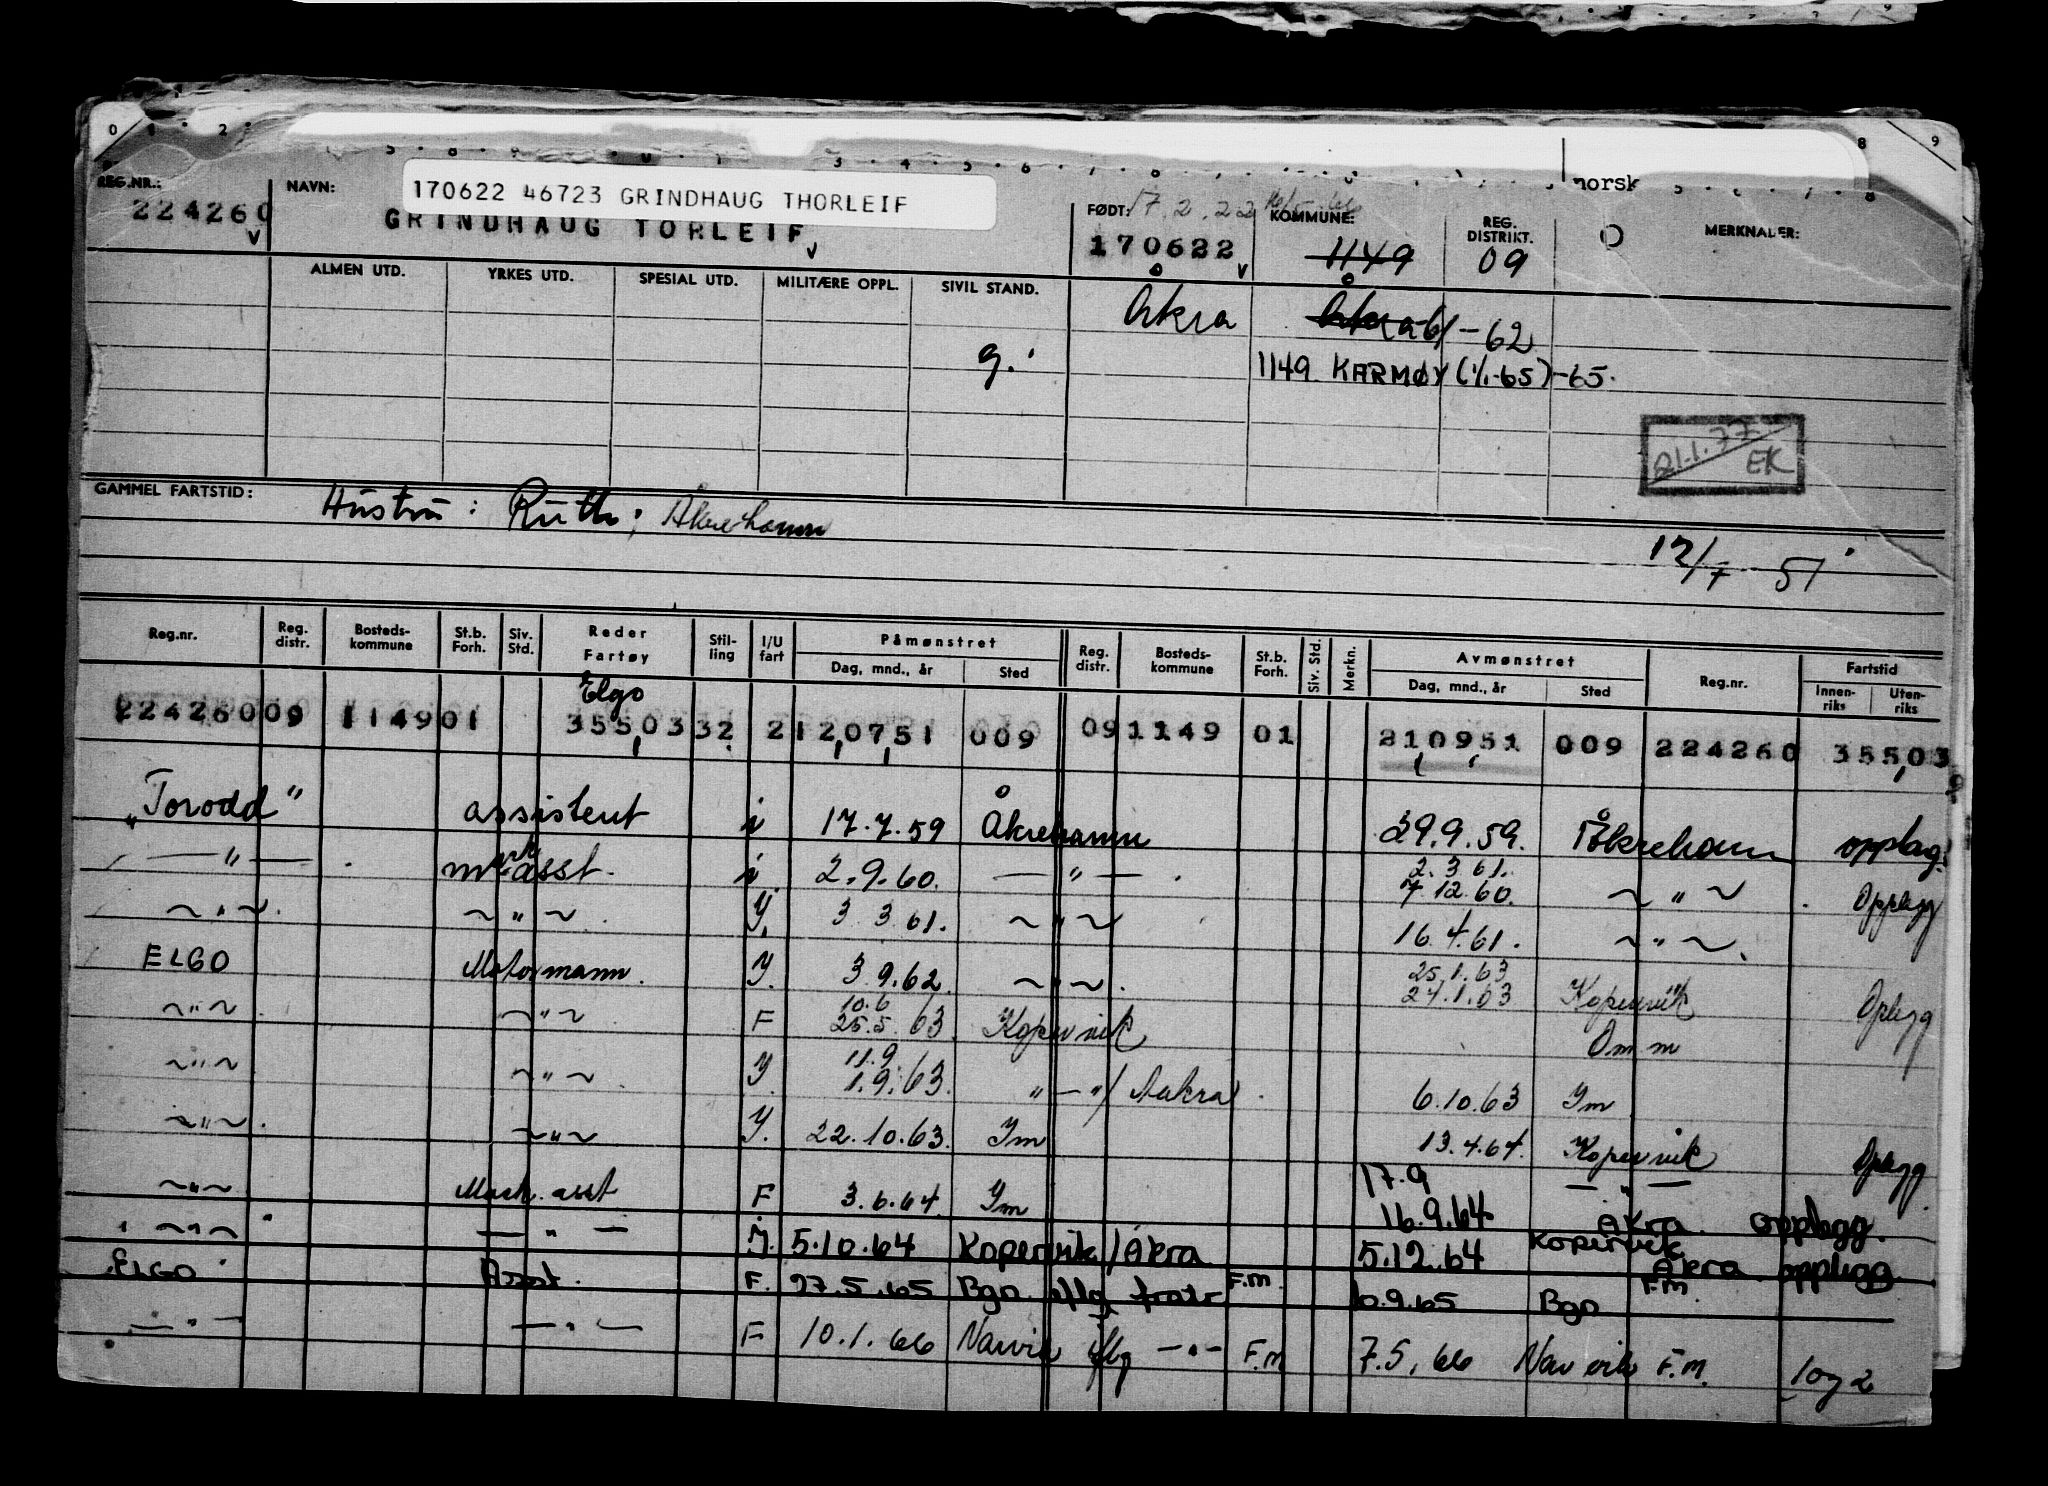 norsk
REG.NR.: NAVN: 170622 46723 GRINDHAUG THORLEIF
224260 GRINDHAUG TORLEIF FØDT: 17.2.22 KOMMUNE: REG. DISTRIKT. MERKNADER:
170622 1149 09
ALMEN UTD. YRKES UTD. SPESIAL UTD. MILITÆRE OPPL. SIVIL STAND.
Åkra Åkra 61-62
g. 1149 KARMØY (1/1-65) -65.
21.1.77 EK
GAMMEL FARTSTID: Hustru: Ruth; Åkrehamn
12/7 - 51
Reg.nr. Reg. distr. Bosteds-kommune St.b. Forh. Siv. Std. Reder Fartøy Stil-ling I/U fart Påmønstret Dag, mnd., år Sted Reg. distr. Bosteds-kommune St.b. Forh. Siv. Std. Merkn. Avmønstret Dag, mnd., år Sted Reg.nr. Fartstid Innen-riks Uten-riks
Elgo
224260 09 1149 01 35503 32 2 120751 009 09 1149 01 210951 009 224260 35503
"Torodd" assistent i 17.7.59 Åkrehamn 29.9.59. Åkrehamn opplag.
— " — mask asst. i 2.9.60. — " — . 2.3.61. 7.12.60. ~ " ~ Opplegg
~ " ~ . ~ " ~ . Y. 3 3 61. ~ " ~ 16.4.61. ~ " ~ .
ELGO Motormann. Y. 3 9.62. ~ " ~ . 25.1.63 27.1.63 Kopervik Oplegg
~ " ~ ~ " ~ F 10.6 25.5. 63. Kopervik Omm
~ " ~ ~ " ~ . Y. 11.9. 1.9.63. " — " / Aakra . 6.10.63 Ym
~ " ~ . ~ " ~ Y. 22.10.63. Ym 13.4.64. Kopervik Oplegg
~ " ~ Mask. asst F 3.6.64. Ym 17.9 — " —
16.9.64 Akra. opplegg.
~ " ~ — " — Y. 5.10.64 Kopervik/Åkra 5.12.64 Kopervik Åkra opplegg
ELGO Asst. F. 27.5.65 Bgo iflg fratr F.m. 10.9.65 Bgo F.m
— " — — " — F 10.1.66 Narvik iflg — " — F.m 7.5.66 Narvik F.m. 1 og 2